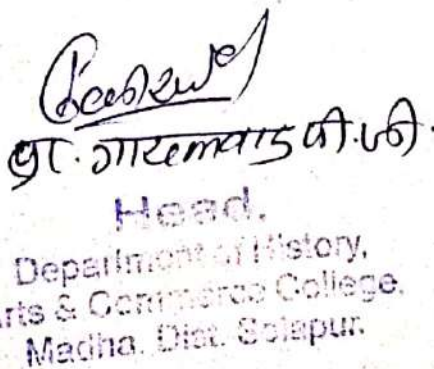 प्रा. गायकवाड पी.जी.
Head,
Department of History,
Arts & Commerce College,
Madha, Dist. Solapur.